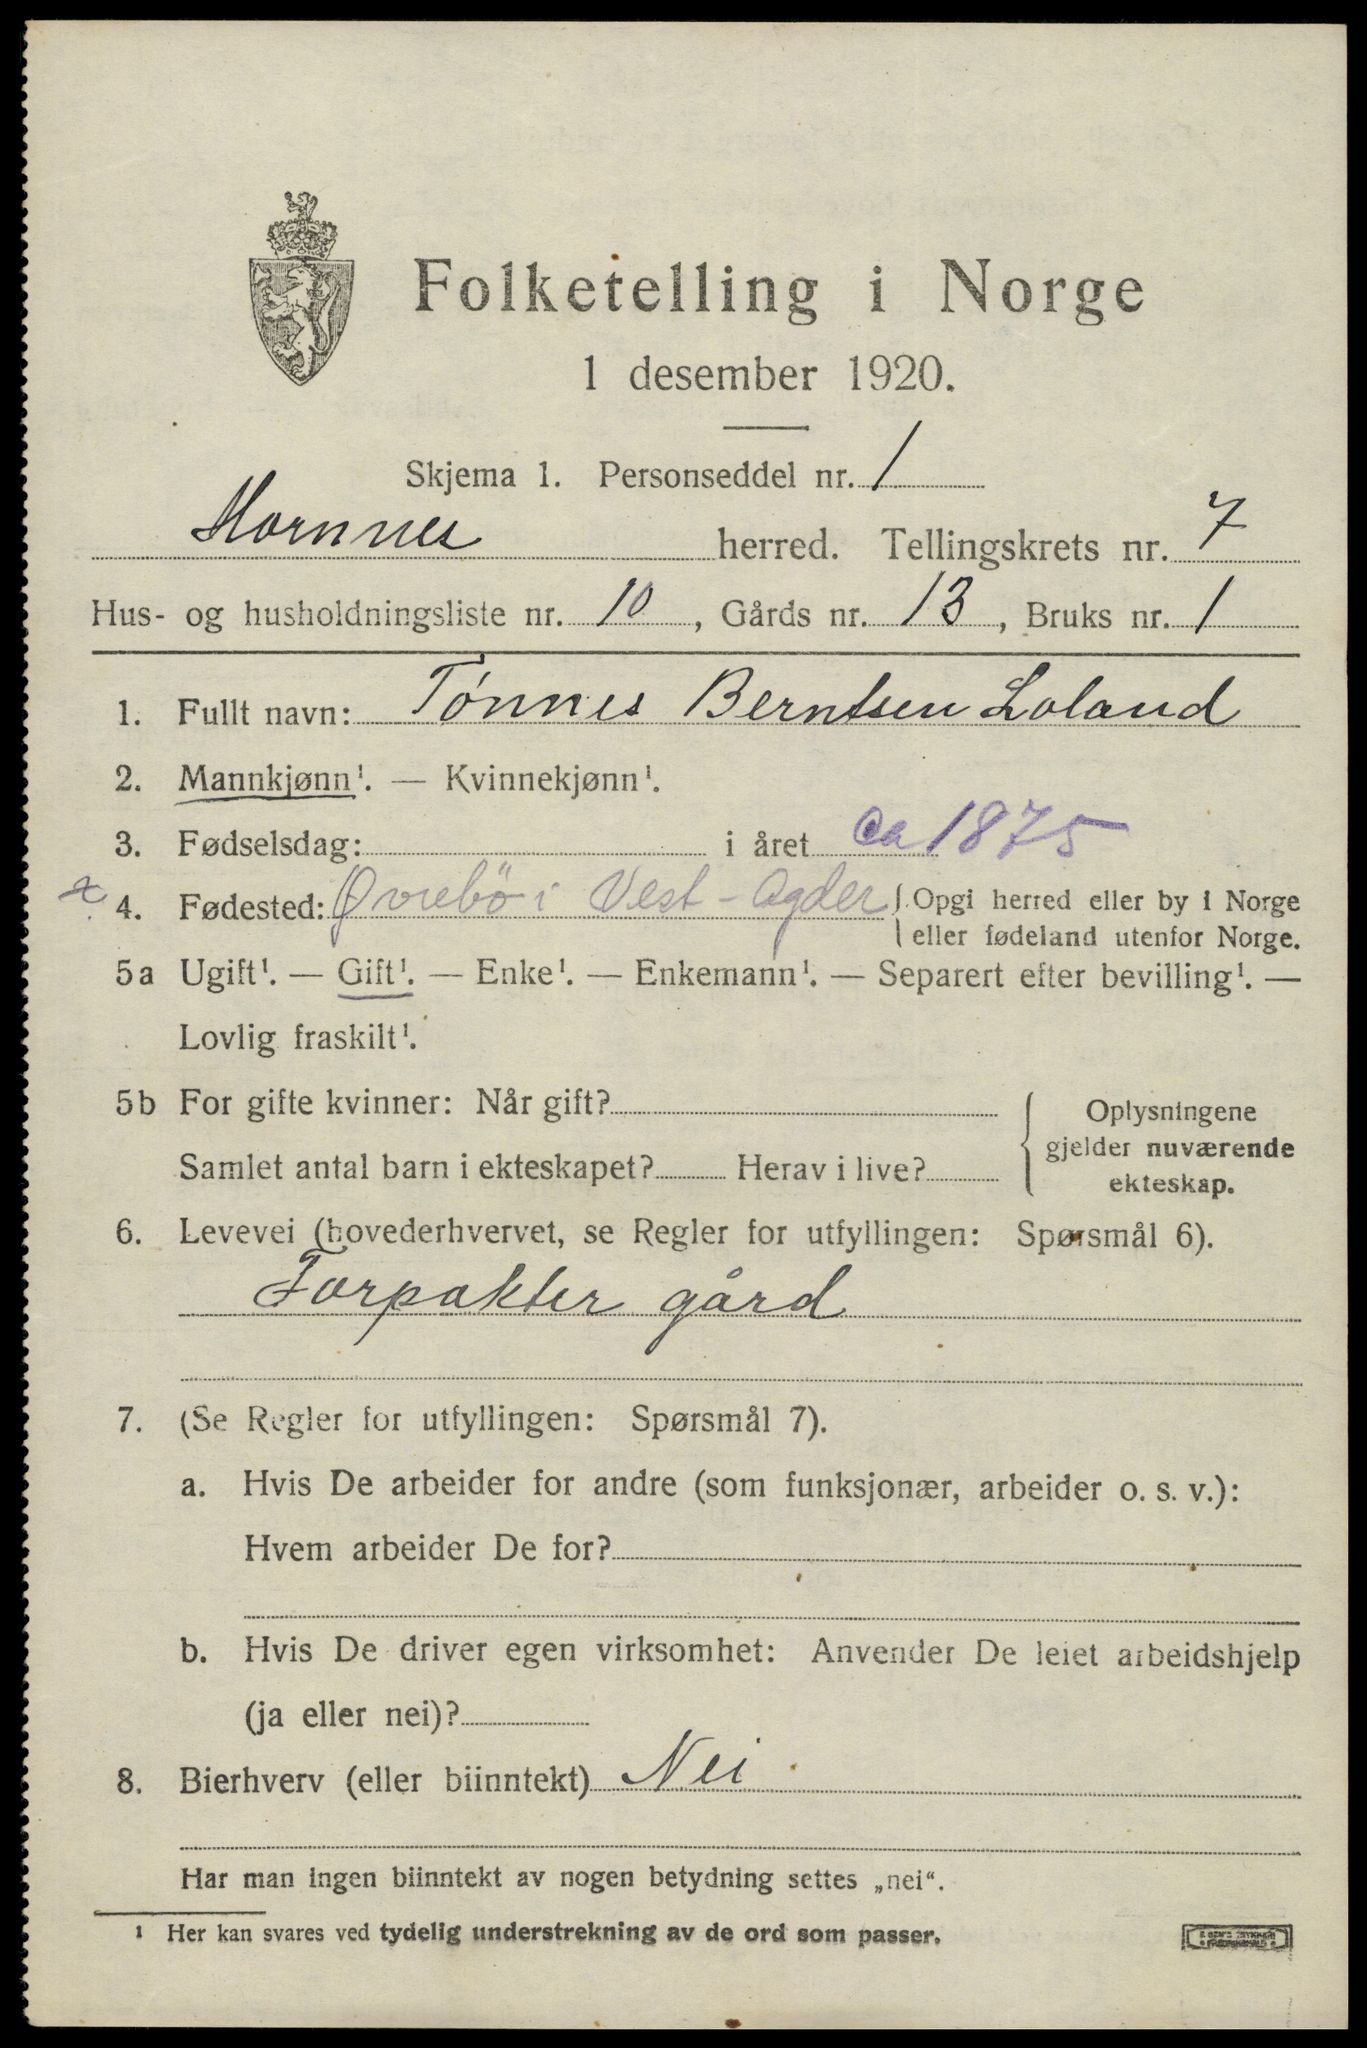 Folketelling i Norge
1 desember 1920.
Skjema 1. Personseddel nr. 1
Hornnes herred. Tellingskrets nr. 7
Hus- og husholdningsliste nr. 10, Gårds nr. 13, Bruks nr. 1
1. Fullt navn: Tønnes Berntsen Loland
2. Mannkjønn¹. — Kvinnekjønn¹.
3. Fødselsdag: i året ca 1875
x 4. Fødested: Øvrebö i Vest-Agder { Opgi herred eller by i Norge
eller fødeland utenfor Norge.
5a Ugift¹. — Gift¹. — Enke¹. — Enkemann¹. — Separert efter bevilling¹. —
Lovlig fraskilt¹.
5b For gifte kvinner: Når gift? { Oplysningene
gjelder nuværende
Samlet antal barn i ekteskapet? Herav i live?
ekteskap.
6. Levevei (hovederhvervet, se Regler for utfyllingen: Spørsmål 6).
Forpakter gård
7. (Se Regler for utfyllingen: Spørsmål 7).
a. Hvis De arbeider for andre (som funksjonær, arbeider o. s. v.):
Hvem arbeider De for?
b. Hvis De driver egen virksomhet: Anvender De leiet arbeidshjelp
(ja eller nei)?
8. Bierhverv (eller biinntekt) Nei
Har man ingen biinntekt av nogen betydning settes „nei“.
¹ Her kan svares ved tydelig understrekning av de ord som passer.